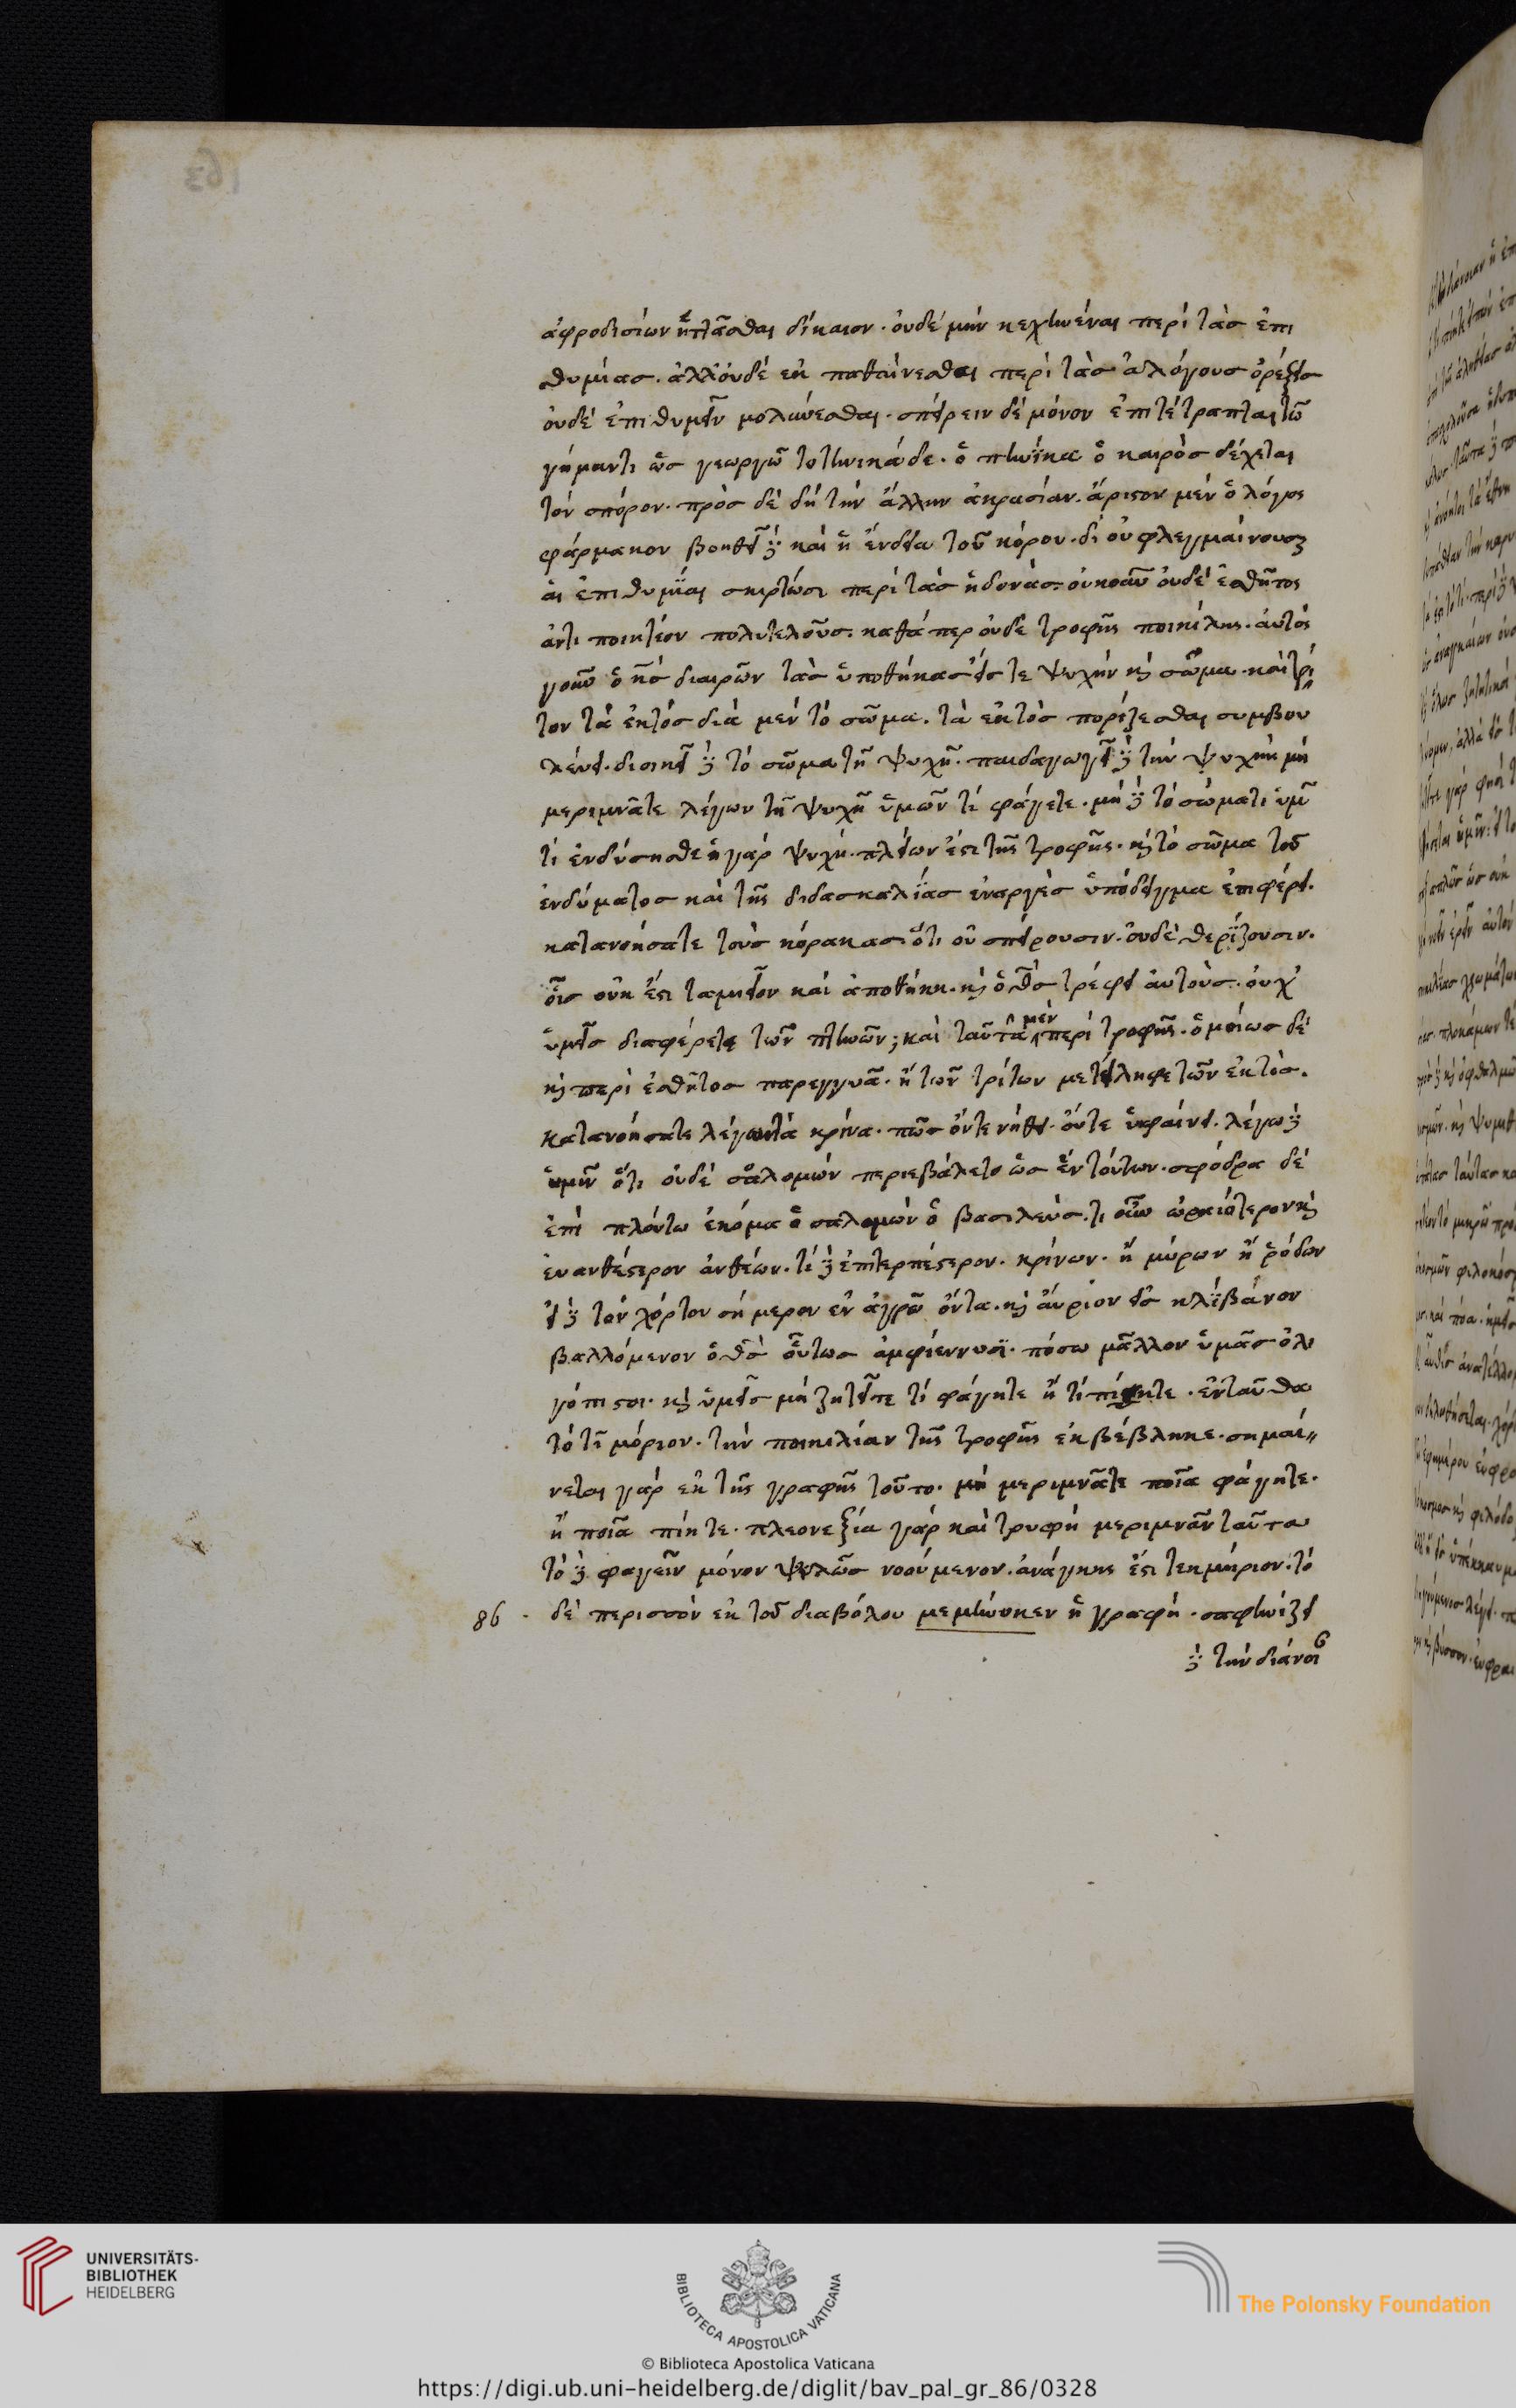 163
ἀφροδισίων ἡττᾶσθαι δίκαιον. οὐδὲ μὴν κεχηνέναι περὶ τὰς ἐπι
θυμίας. ἀλλ' οὐδὲ ἐκπαθαίνεσθαι περὶ τὰς ἀλόγους ὀρέξεις
οὐδὲ ἐπιθυμεῖν μολύνεσθαι. σπείρειν δὲ μόνον ἐπιτέτραπται τῶ
γήμαντι ὡς γεωργῶ τοτηνικάδε. ὁπηνίκα ὁ καιρὸς δέχεται
τὸν σπόρον. πρὸς δὲ δὴ τὴν ἄλλην ἀκρασίαν. ἄριστον μὲν ὁ λόγος
φάρμακον βοηθεῖ δὲ καὶ ἡ ἔνδεια τοῦ κόρου. δι' οὗ φλεγμαίνουσαι
αἱ ἐπιθυμίαι σκιρτῶσι περὶ τὰς ἡδονάς. οὐκοῦν οὐδὲ ἐσθῆτος
ἀντιποιητέον πολυτελοῦς. καθάπερ οὐδὲ τροφῆς ποικίλης. αὐτὸς
γοῦν ὁ κς διαιρῶν τὰς ὑποθήκας εἴς τε ψυχὴν κὶ σῶμα. καὶ τρί
τον τὰ ἐκτός διὰ μὲν τὸ σῶμα. τὰ ἐκτὸς πορίζεσθαι συμβου
λεύει. διοικεῖ δὲ τὸ σῶμα τῆ ψυχῆ. παιδαγωγεῖ δὲ τὴν ψυχὴν μὴ
μεριμνᾶτε λέγων τῆ ψυχῆ ὑμῶν τί φάγετε. μὴ δὲ τὸ σώματι ὑμῶν
τί ἐνδύσησθε ἡ γὰρ ψυχὴ πλείων ἐστὶ τῆς τροφῆς. κὶ τὸ σῶμα τοῦ
ἐνδύματος καὶ τῆς διδασκαλίας ἐναργὲς ὑπόδειγμα ἐπιφέρει.
κατανοήσατε τοὺς κόρακας ὅτι οὐ σπείρουσιν. οὐδὲ θερίζουσιν.
οἷς οὐκ ἔστι ταμιεῖον καὶ ἀποθήκη. κὶ ὁ θς τρέφει αὐτοὺς. οὐχ
ὑμεῖς διαφέρετε τῶν πτηνῶν; καὶ ταῦτα μὲν περὶ τροφῆς. ὁμοίως δὲ
κὶ περὶ ἐσθῆτος παρεγγυᾶ. ἡ τῶν τρίτων μετείληφε τῶν ἐκτός.
κατανοήσατε λέγων τὰ κρίνα. πῶς οὔτε νήθει. οὔτε ὑφαίνει. λέγω δὲ
ὑμῖν ὅτι οὐδὲ σαλομὼν περιεβάλετο ὡς ἓν τούτων. σφόδρα δὲ
ἐπὶ πλούτω ἐκόμα ὁ σαλομὼν ὁ βασιλεύς. τι οὖν ὡραιότερον κὶ
εὐανθέστερον ἀνθέων. τί δὲ ἐπιτερπέστερον. κρίνων. ἢ μύρων ἢ ῥόδων
εἰ δὲ τὸν χόρτον σήμερον ἐν ἀγρῶ ὄντα. κὶ αὔριον εἰς κλίβανον
βαλλόμενον ὁ θς οὕτως ἀμφιέννυσι. πόσω μᾶλλον ὑμᾶς ὀλι
γόπιστοι. κὶ ὑμεῖς μὴ ζητεῖτε τί φάγητε ἢ τί πίητε. ἐνταῦθα
τὸ τί μόριον. τὴν ποικιλίαν τῆς τροφῆς ἐκβέβληκε. σημαί〃
νεται γὰρ ἐκ τῆς γραφῆς τοῦτο. μὴ μεριμνᾶτε ποῖα φάγητε.
ἢ ποῖα πίητε. πλεονεξία γὰρ καὶ τρυφὴ μεριμνᾶν ταῦτα
τὸ δὲ φαγεῖν μόνον ψιλῶς νοούμενον. ἀνάγκης ἐστὶ τεκμήριον. τὸ
86 . δὲ περισσὸν ἐκ τοῦ διαβόλου μεμήνυκεν ἡ γραφή. σαφηνίζει
δὲ τὴν διάνοι
UNIVERSITÄTS-
BIBLIOTHEK
HEIDELBERG
BIBLIOTECA APOSTOLICA VATICANA
The Polonsky Foundation
© Biblioteca Apostolica Vaticana
https://digi.ub.uni-heidelberg.de/diglit/bav_pal_gr_86/0328